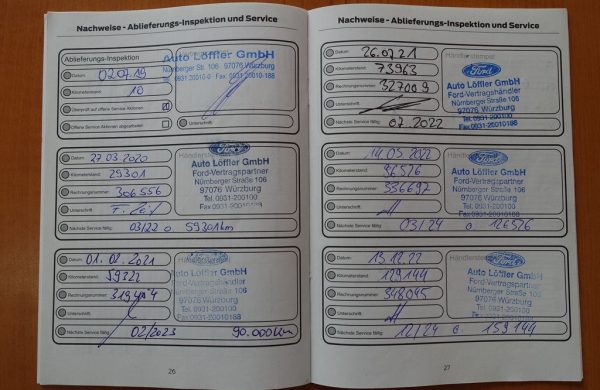 Nachweise - Ablieferungs-Inspektion und Service
Ablieferungs-Inspektion
Datum: 02.07.19
Kilometerstand: 10
Überprüft auf offene Service Aktionen
Offene Service Aktionen abgearbeitet
Auto Löffler GmbH
Nürnberger Str. 106 97076 Würzburg
Unterschrift
Datum: 27.03.2020
Kilometerstand: 29301
Rechnungsnummer: 306556
Unterschrift
Nächste Service fällig: 03/22 o 59301km
Ford
Auto Löffler GmbH
Ford-Vertragspartner
Nürnberger Straße 106
97076 Würzburg
Tel. 0931-200100
Fax 0931-20010188
Datum: 01.02.2021
Kilometerstand: 59222
Rechnungsnummer:
Unterschrift
Nächste Service fällig: 02/2023 90.000km
Auto Löffler GmbH
Ford-Vertragshändler
Nürnberger Straße 106
97076 Würzburg
Tel. 0931-200100
Fax 0931-20010188
26
Nachweise - Ablieferungs-Inspektion und Service
Datum: 26.07.21
Kilometerstand: 73963
Rechnungsnummer: 327009
Unterschrift
Nächste Service fällig: 07.2022
Händlerstempel
Ford
Auto Löffler GmbH
Ford-Vertragshändler
Nürnberger Straße 106
97076 Würzburg
Tel. 0931-200100
Fax 0931-20010188
Datum: 14.05.2022
Kilometerstand: 96576
Rechnungsnummer: 336697
Unterschrift
Nächste Service fällig: 03/24 o 126576
Ford
Auto Löffler GmbH
Ford-Vertragspartner
Nürnberger Straße 106
97076 Würzburg
Tel. 0931-200100
Fax 0931-20010188
Datum: 13.12.22
Kilometerstand: 129144
Rechnungsnummer: 348045
Unterschrift
Nächste Service fällig: 12/24 o 159144
Auto Löffler GmbH
Ford-Vertragspartner
Nürnberger Straße 106
97076 Würzburg
Tel. 0931-200100
Fax 0931-20010188
27